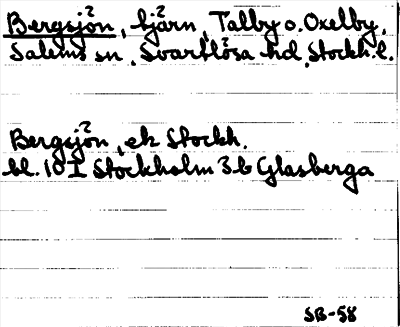 Bergsjön, tjärn, Talby o. Oxelby,
Salems sn, Svartlösa hd, Stockh. l.
Bergsjön, ek Stockh.
bl. 10 I Stockholm 3 b Glasberga
SB-58